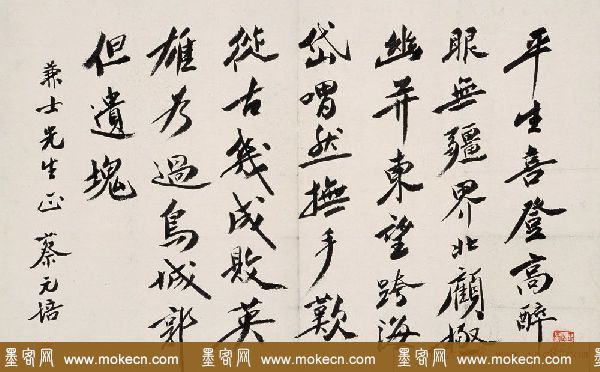 平生喜登高醉
眼無疆界北顧極
幽并東望跨海
岱喟然撫手歎
從古幾成敗英
雄為過鳥城郭
但遺塊
兼士先生正 蔡元培
墨客网 www.mokecn.com 墨客网 www.mokecn.com 墨客网 www.mokecn.com